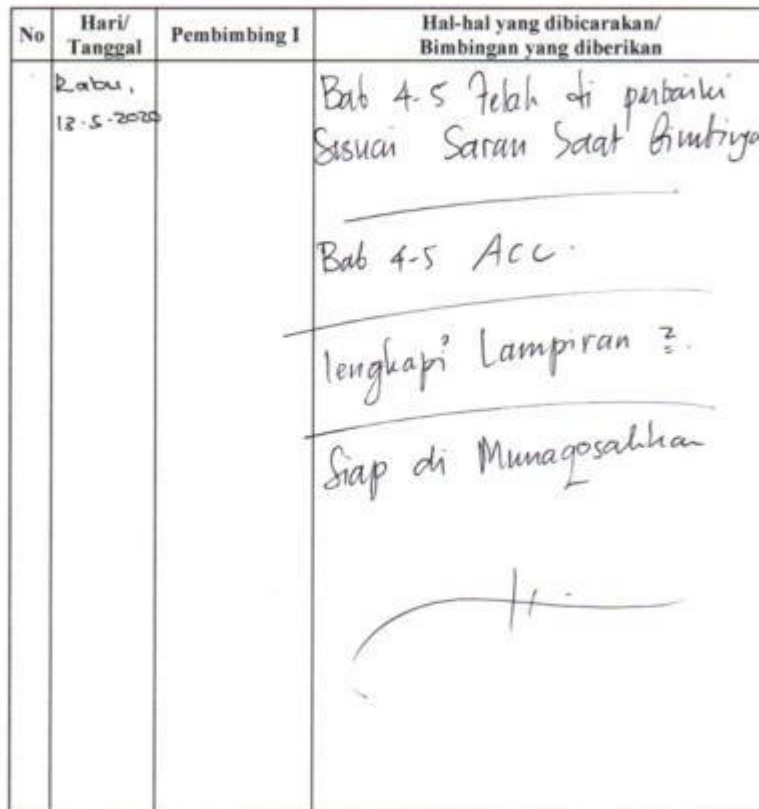 No
Hari/
Tanggal
Pembimbing I
Hal-hal yang dibicarakan/
Bimbingan yang diberikan
Rabu,
13-5-2020
Bab 4-5 Telah di perbaiki
Sesuai Saran Saat Bimbinga
Bab 4-5 Acc.
lengkapi Lampiran 2.
Siap di Munaqosahkan